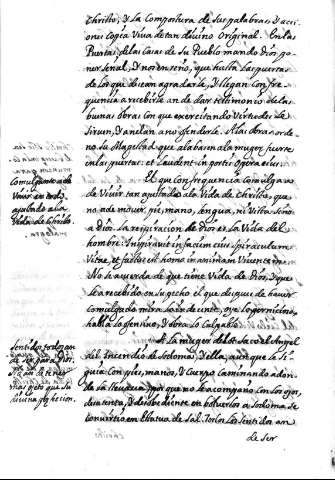 Christo, y la Compostura de sus palabras, y acci
ones Copia Viva de tan divino Original. En las
Puertas de las Casas de su Pueblo mando Dios po
ner señal, y nos enseñó, que hasta las puertas
de los que desean agradarle, y llegan con fre
quencia a recebirle an de dar testimonio de las
buenas obras con que exercitando Virtudes le
sirven, y anelan a
no su Magestad que alabasen a la muger fuerte
en las puertas: et laudent in portis opera eius.
El que con frequencia comulga a
de Vivir tan ajustado a la Vida de Christo, que
no a de mover, pie, mano, lengua, ni Vista sino
a Dios. La respiracion de Dios es la Vida del
hombre: Inspiravit in faciem eius spiraculum
Vitae, et factus est homo in animam Viventem.
No se acuerda de que tiene Vida de Dios, y que
le a recebido en su pecho el que despues de haver
comulgado mira lo indecente, oye lo pernicioso,
habla lo genino, y obra lo Culpable.
A la muger de Lot saco el Angel
del Incendio de Sodoma, y ella, aunque le se
guia con pies, manos, y Cuerpo caminando a don
de la llevava, por que no le acompaño con los ojos,
desatenta, y desobediente en bolverlos a Sodoma se
convirtio en Estatua de Sal. Todos los sentidos an
de ser
Comulgante a de
Vivir en todo
ajustado a la
Vida de Christo.
Sentidos todos an
de ser para Dios,
sin
mas
divina perfeccion.